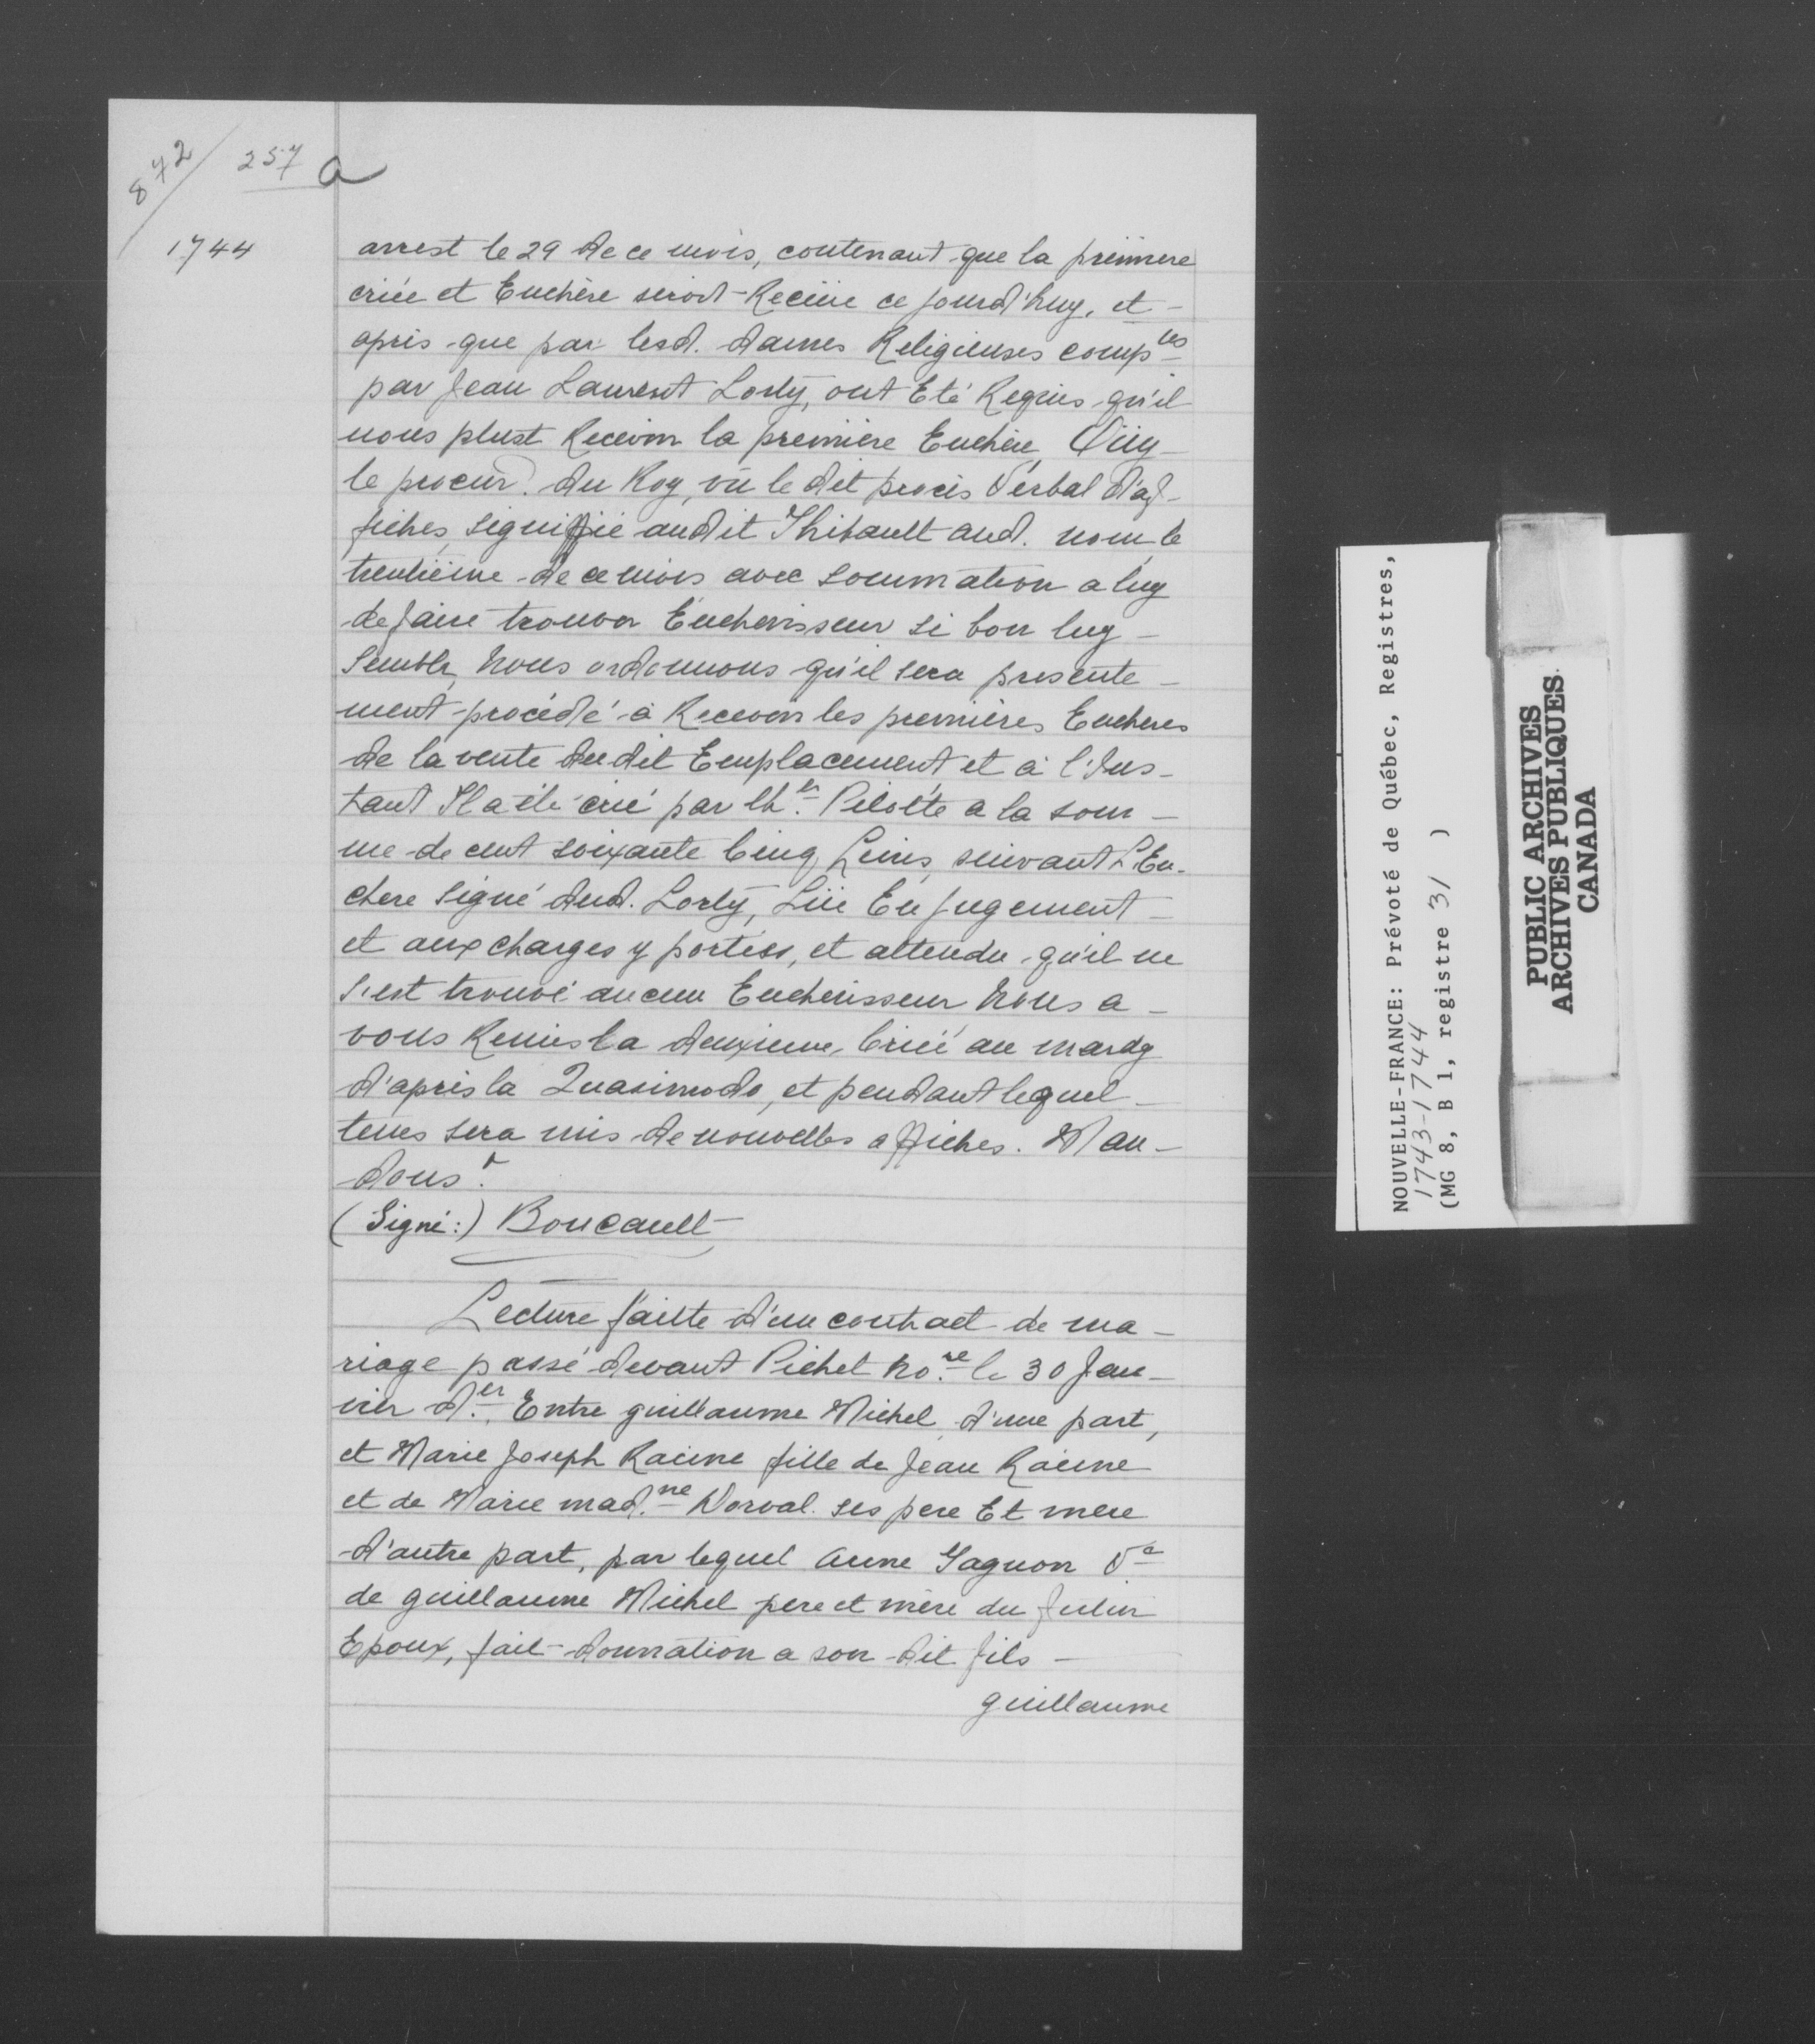 872/ 257 a
1744
arrest le 29 de ce mois, contenant que la première
criée et Enchère seroit Recüe ce jourd'huy, et -
après que par lesd. dames Religieuses comp.tes
par Jean Laurent Lorty, ont Eté Requis qu'il
nous plust Recevoir la première Enchère, Oüy -
le procur. du Roy, vü le dit procès Verbal d'af-
fiches, signiffié audit Thibault aud. nom, le
trentiéme de ce mois avec sommation a luy
de faire trouver Encherisseur si bon luy -
Semble, Nous ordonnons qu'il sera presente -
ment procédé à Recevoir les premières Encheres
de la vente du dit Emplacement et à l'Ins -
tant Il a été crié par lh.er Pilotte a la som -
me de cent soixante Cinq Livres, suivant L'En-
chere Signé dud. Lorty, Lüe En jugement -
et aux charges y portées, et attendu qu'il ne
s'est trouvé aucun Encherisseur Nous a -
vons Remis la deuxieme Criée au mardy
d'après la Quasimodo, et pendant lequel -
tems sera mis de nouvelles affiches. Man -
dons.
(Signé:) Boucault
Lecture faitte d'un contract de ma -
riage passé devant Pichet No.re le 30 Jan -
vier d.er, Entre guillaume Michel, d'une part,
et Marie Joseph Racine fille de Jean Racine
et de Marie mad.ne Dorval ses pere Et mere
d'autre part, par lequel Anne Gagnon V.e
de guillaume Michel pere et mère du futur
Epoux, fait donnation a son dit fils -
guillaume
NOUVELLE-FRANCE: Prévoté de Québec, Registres,
1743-1744
(MG 8, B 1, registre 31 )
PUBLIC ARCHIVES
ARCHIVES PUBLIQUES
CANADA